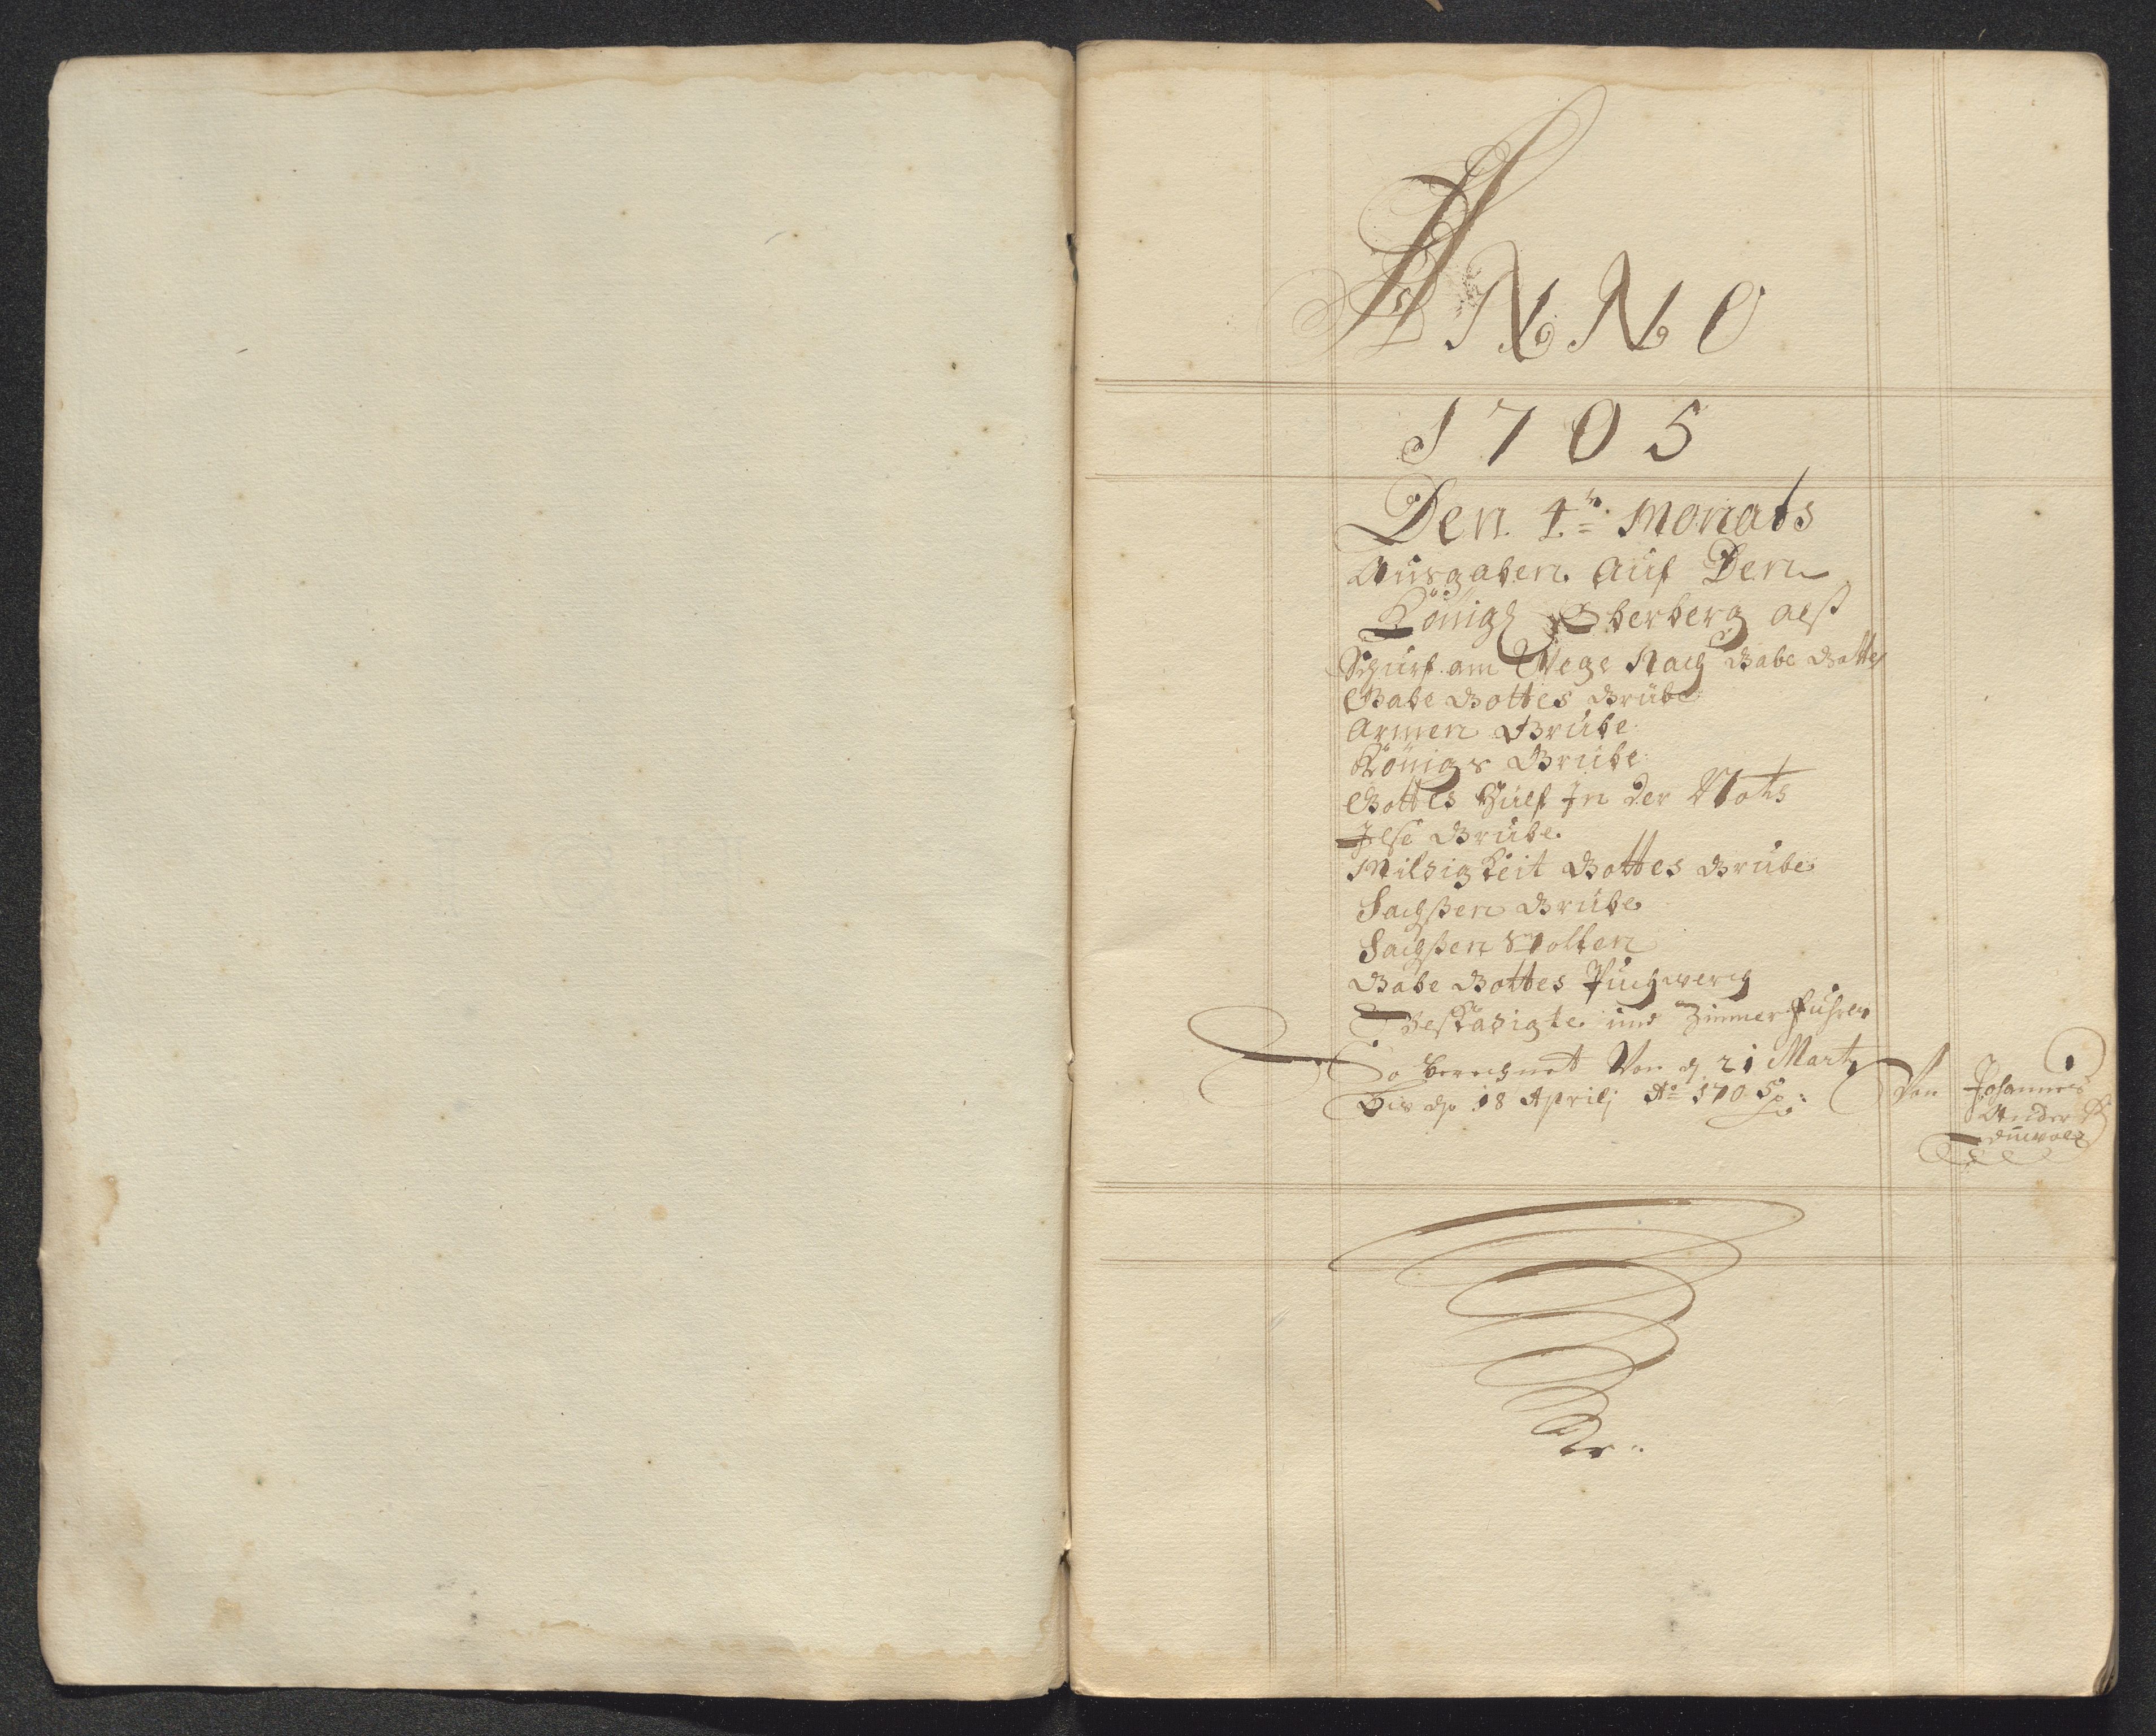 ANNO
1705
Den 4ⁿ Monats
Ausgaben auf Den
Königl Oberberg alß
Schurf am Wege Nach Gabe Gottes
Gabe Gottes Grube
Armen Grube
Königs Grube
Gottes Hülf In der Noth
Grube
Mildigkeit Gottes Grube
Sachßen Grube
Sachßen Stollen
Gabe Gottes Puchwerch
und Zimmer Fuhren
So berechnet Von d 21 Marty
Bis d 18 Aprilj Aº 1705
Von Johannes
Ander